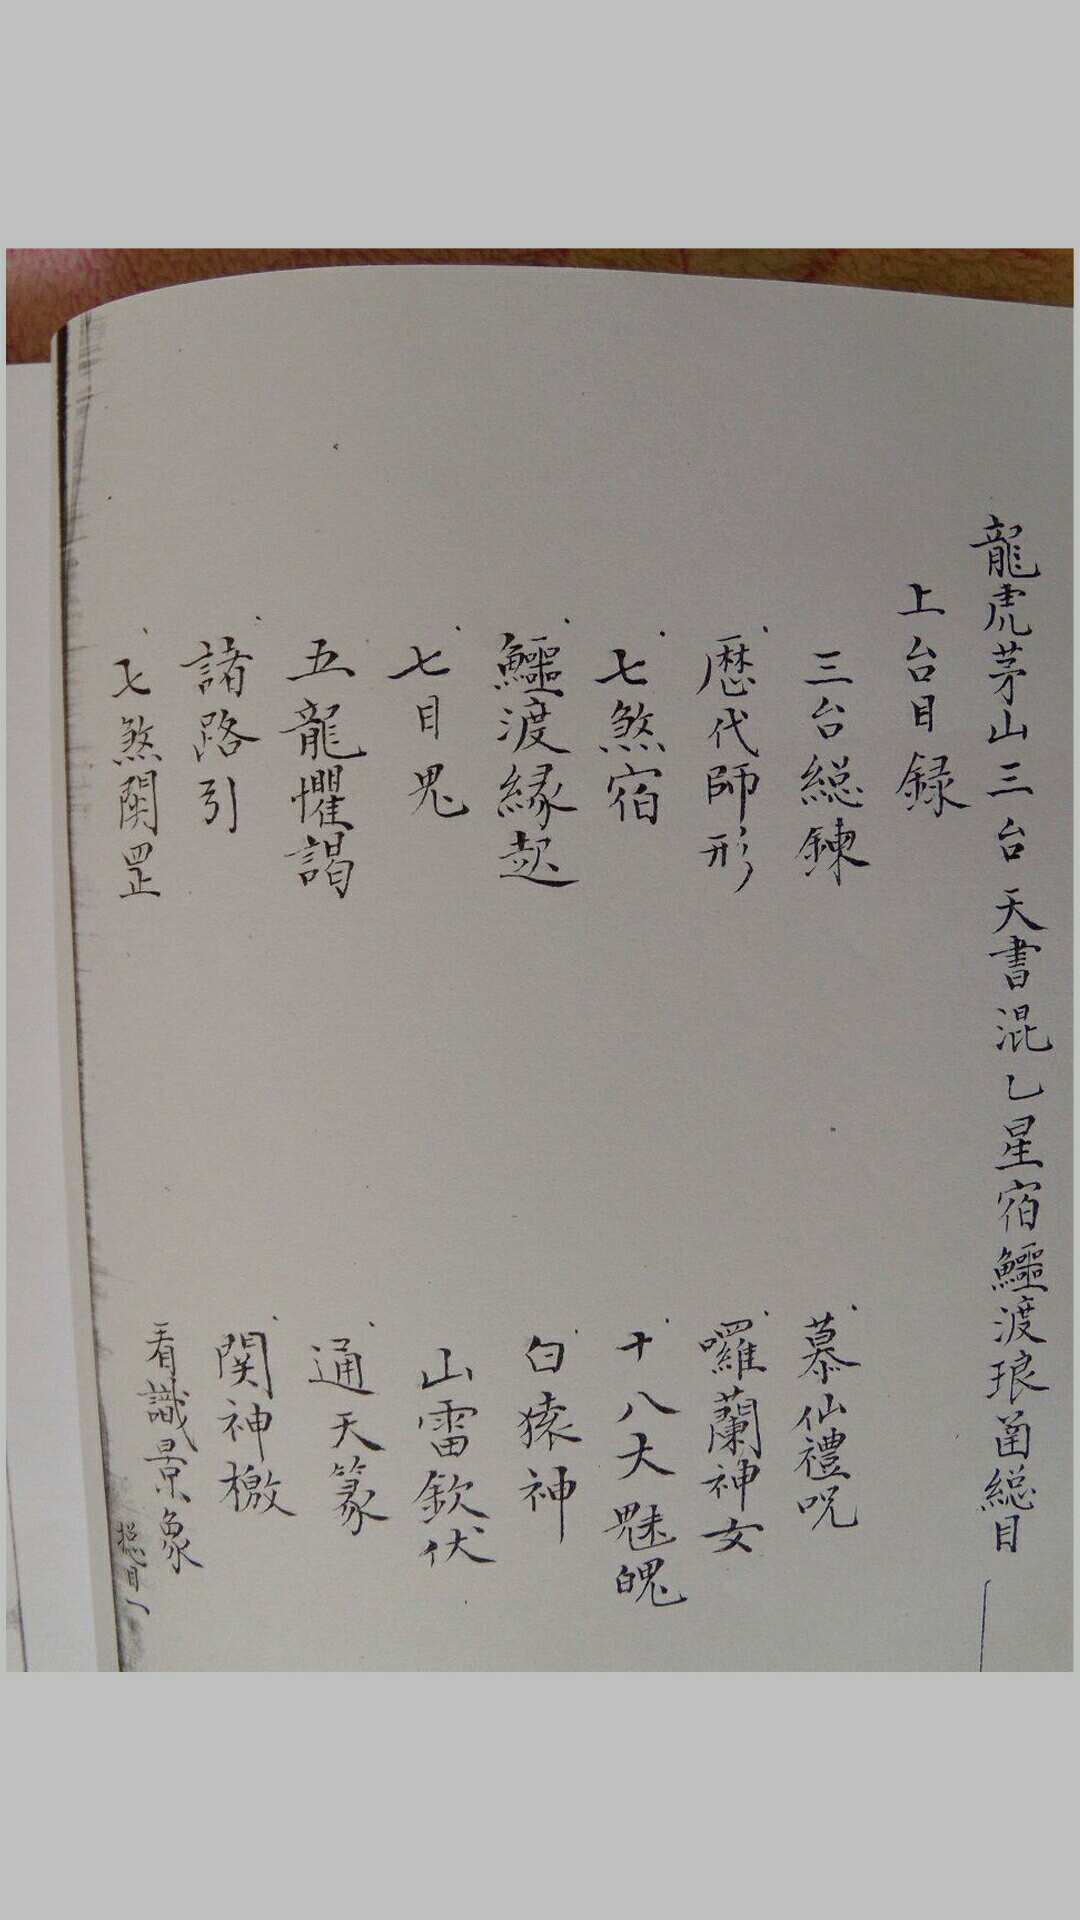 龍虎茅山三台天書混乙星宿鱷渡琅函総目
上台目録
三台総鍊
慕仙禮呪
歴代師形
囉蘭神女
七煞宿
十八大魅魄
鱷渡縁起
白猿神
七目鬼
山雷欽伏
五龍懼謁
通天篆
諸路引
関神檄
七煞関罡
看識景象
総目一